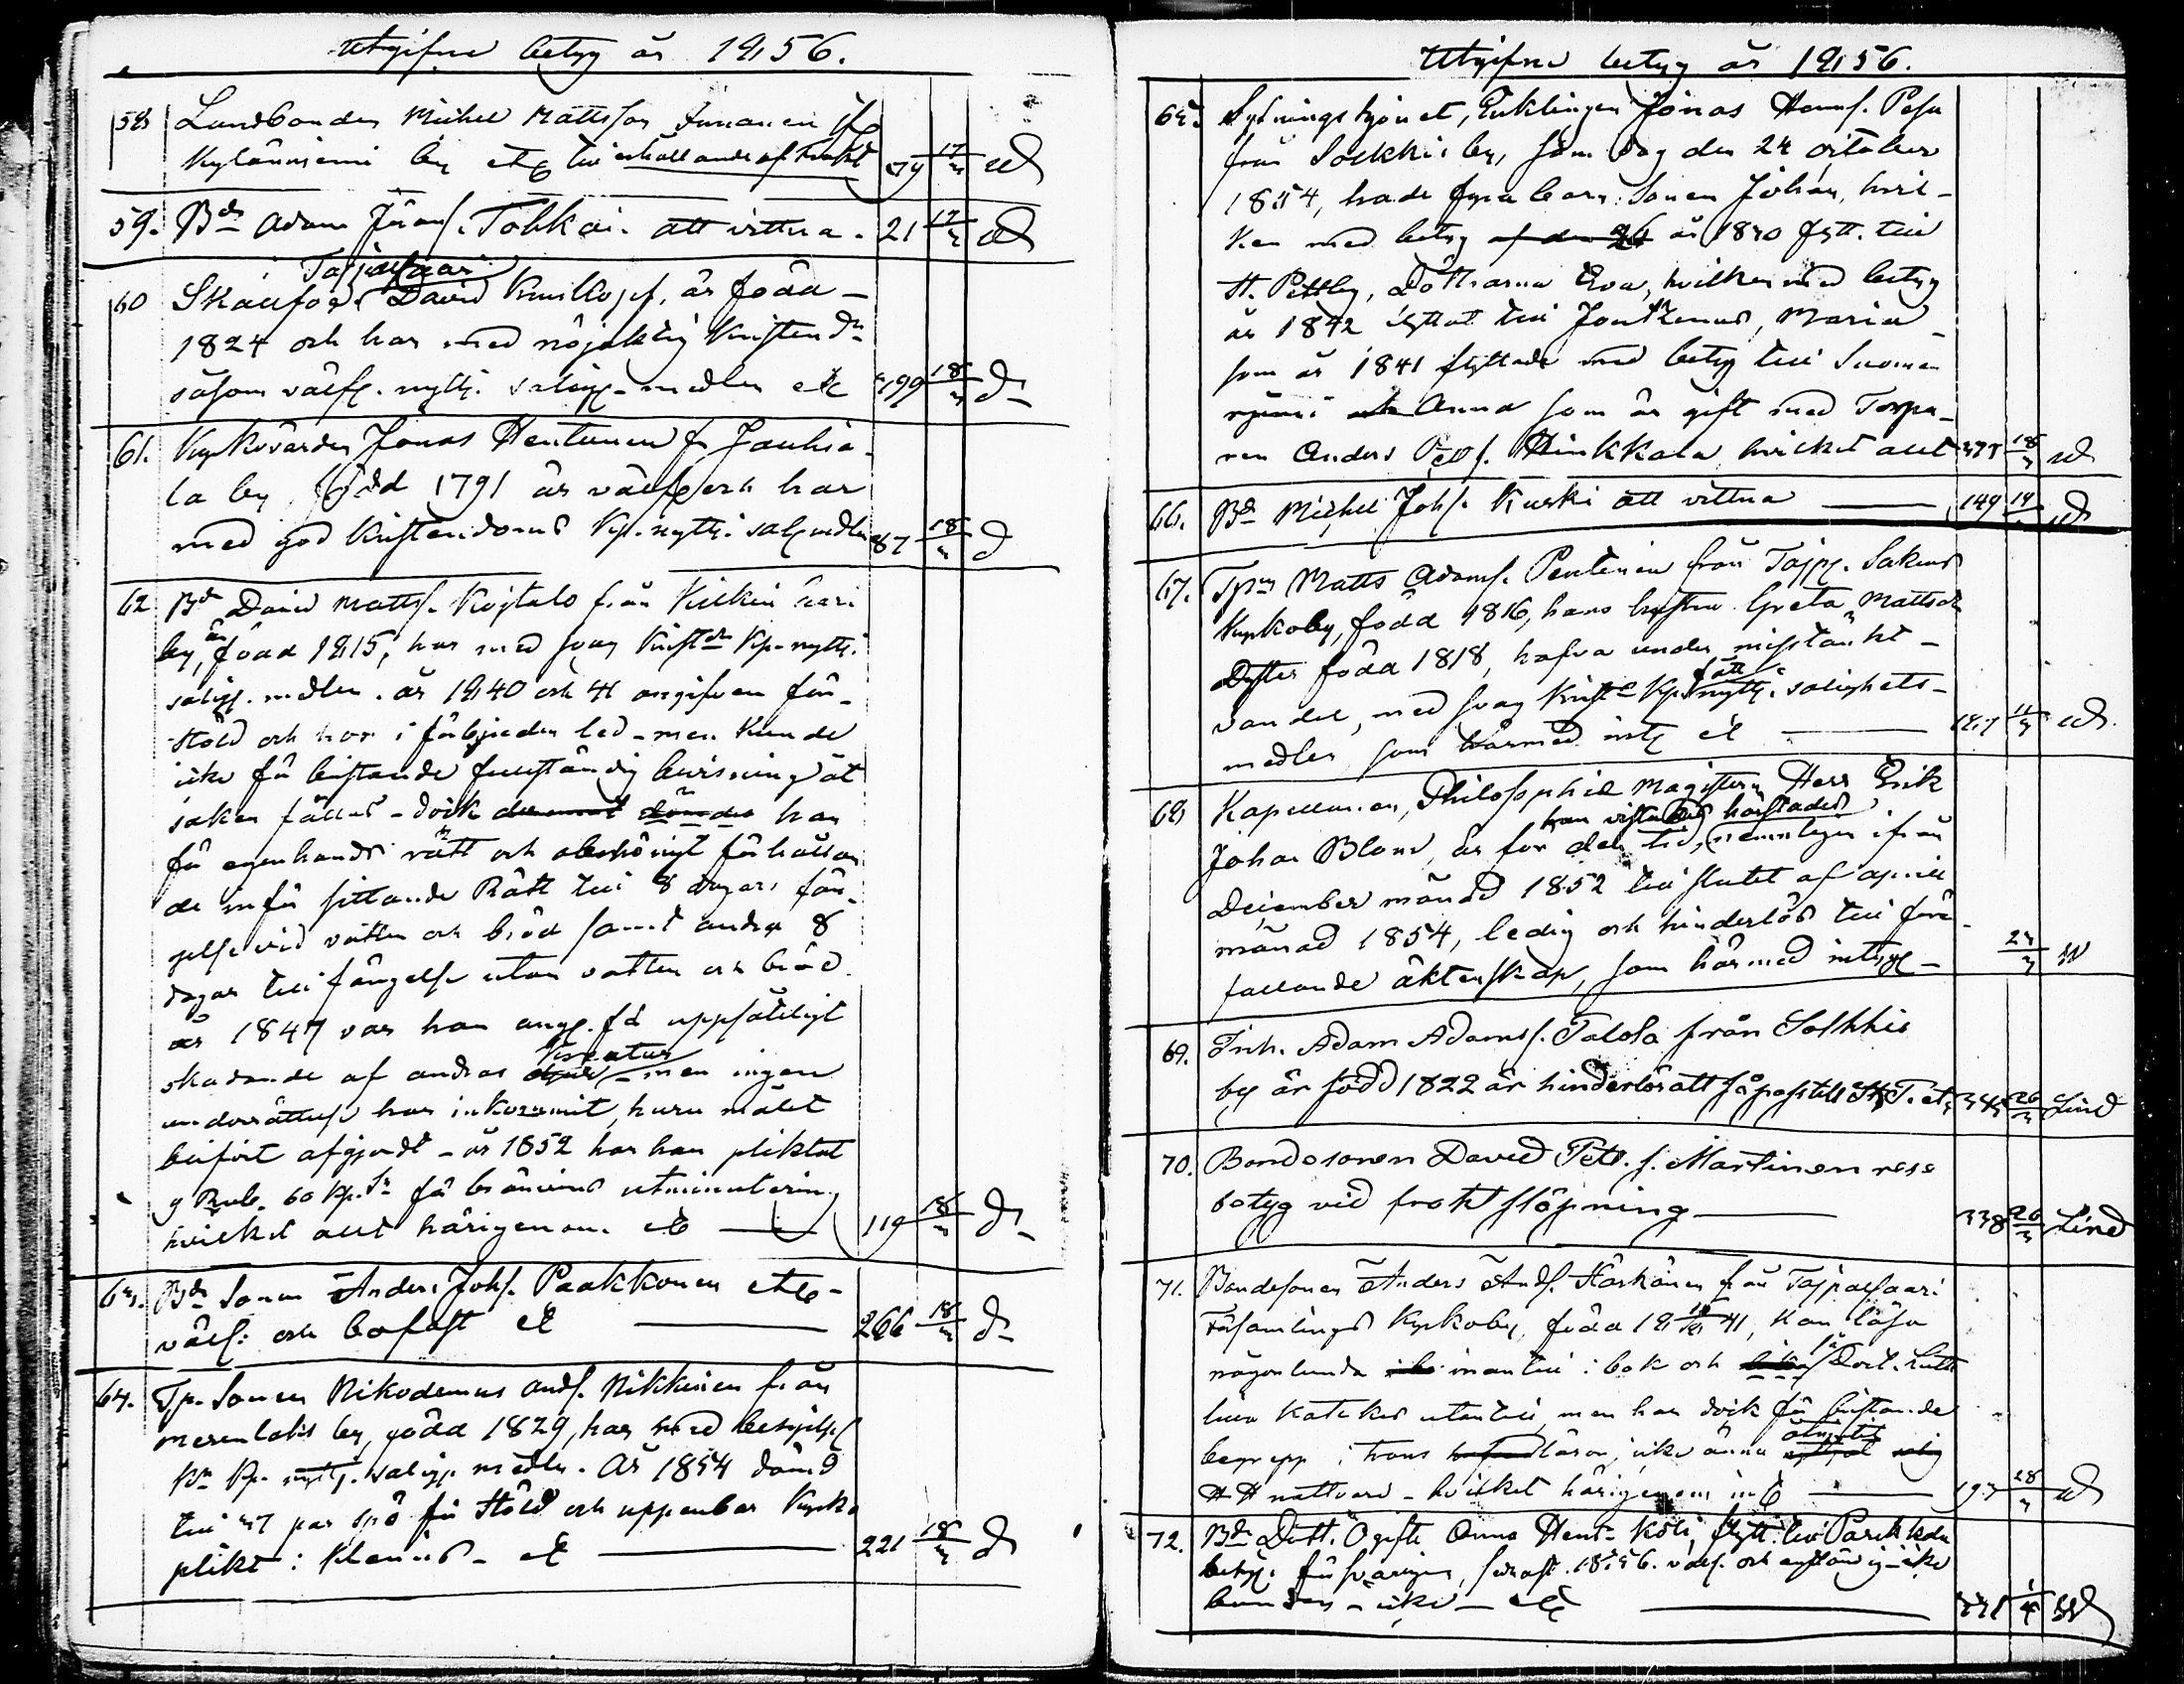 Utgifne betyg år 1856.
58 Landbonden Michel Mattsson
by etc till erhållande af 79 17/3
59. Bd Adam Tolkki. att vittna. 21 17/3
Taipalsaari
60 David är född
1824 och har med nöjaktig kristend:
såsom välfg. nyttj. saligg-medlen etc 199 18/3
61. Kyrkovärden Jonas Hentunen fr Jauhia-
la by, född 1791 är välfg och har
med god kristendoms kp. nyttj. salg medlen 87 18/3
62 Bd David Mattss. från
by, är född 1815, har med svag Krist.d. kp. nyttj.
saligg. medlen. år 1840 och 41 angifven för
stöld och hor i förbjuden led - men kunde
icke för bristande fullständig bevisning åt
saken fällas - dock dömdes han
för egenhands rätt och obehörigt förhållan-
de inför sittande Rätt till 8 dagars fän-
gelse vid vatten och bröd samt andra 8
dagar till fängelse utan vatten och bröd.
år 1847 var han angg. för uppsåtligt
skadande af andras kreatur - men ingen
underrättelse har inkommit, huru målet
blifvit afgjordt - år 1852 har han pliktat
9 Rub. 60 kp. Sr för brännvins utminutering
hvilket allt härigenom etc 119 18/3
63. Bd Sonen Anders Johs. Paakkonen etc
välf: och bofast etc 266 18/3
64. Tp. Sonen Nikodemus Ands. Nikkinen från
Merenlaks by, född 1829, har med
kp. nyttj. saligg. medlen. År 1854 dömd
till par spö för stöld och uppenbar kyrko
plikt: etc 221 18/3
Utgifne betyg år 1856.
65. Sytningshjonet, Enklingen Jonas Hanss. Pesu
från Solkkis by, som dog den 24 october
1854, hade fyra barn: Sonen Johan, hvil-
ken med betyg af den 26 år 1840 flytt. till
St. Pettbg, Döttrarna Eva, hvilken med betyg
år 1842 flyttat till Joutsenus, Maria
som år 1841 flyttade med betyg till Suomen
niemi Anna som är gift med Torpa-
ren Anders Hinkkala hvilket allt 375 18/3
66. Bd Michel Johs. Kurki att vittna 149 19/3
67. Tpn Matts Adams. Pentinen från Taipg. Sokens
Kyrkoby, född 1816, hans hustru Greta Matts
Dotter född 1818, hafva under misstänkt
vandel, med svag Krist. kp. fått nyttj. salighets-
medlen som härmed intg etc 187
68 Kapellanen, Philosophie Magistern Herr Erik
Johan Blom, är för den tid, han vistades härstädes nemligen ifrån
December månad 1852 till slutet af april
månad 1854, ledig och hinderlös till före
fallande äktenskap, som härmed intyg- 24/3
69. Inh. Adam Adamss. Talola från Solkkis
by är född 1822 är hinderlös att få pass till St. P. etc 345 26/3 Lind
70. Bondesonen David Petr. s. Martinen rese
betyg vid frakt släpning 338 26/3 Lind
71. Bondesonen Anders Ands. Härkönen från Taipalsaari
Församlings Kyrkoby, född 18 41, kan läsa
någorlunda innantill i bok och Doct. Luth
lilla kateches utantill, men har dock för bristande
begrepp i trons läror, icke ännu åtnjutit
H H nattvard - hvilket härigenom intg 197 28/3
72. Bd Dott. Ogifta Anna Hens. Köli, flytt. till Parikkala
betyg. 1856. välf. och anständig - icke
bunden - icke - etc 1/4